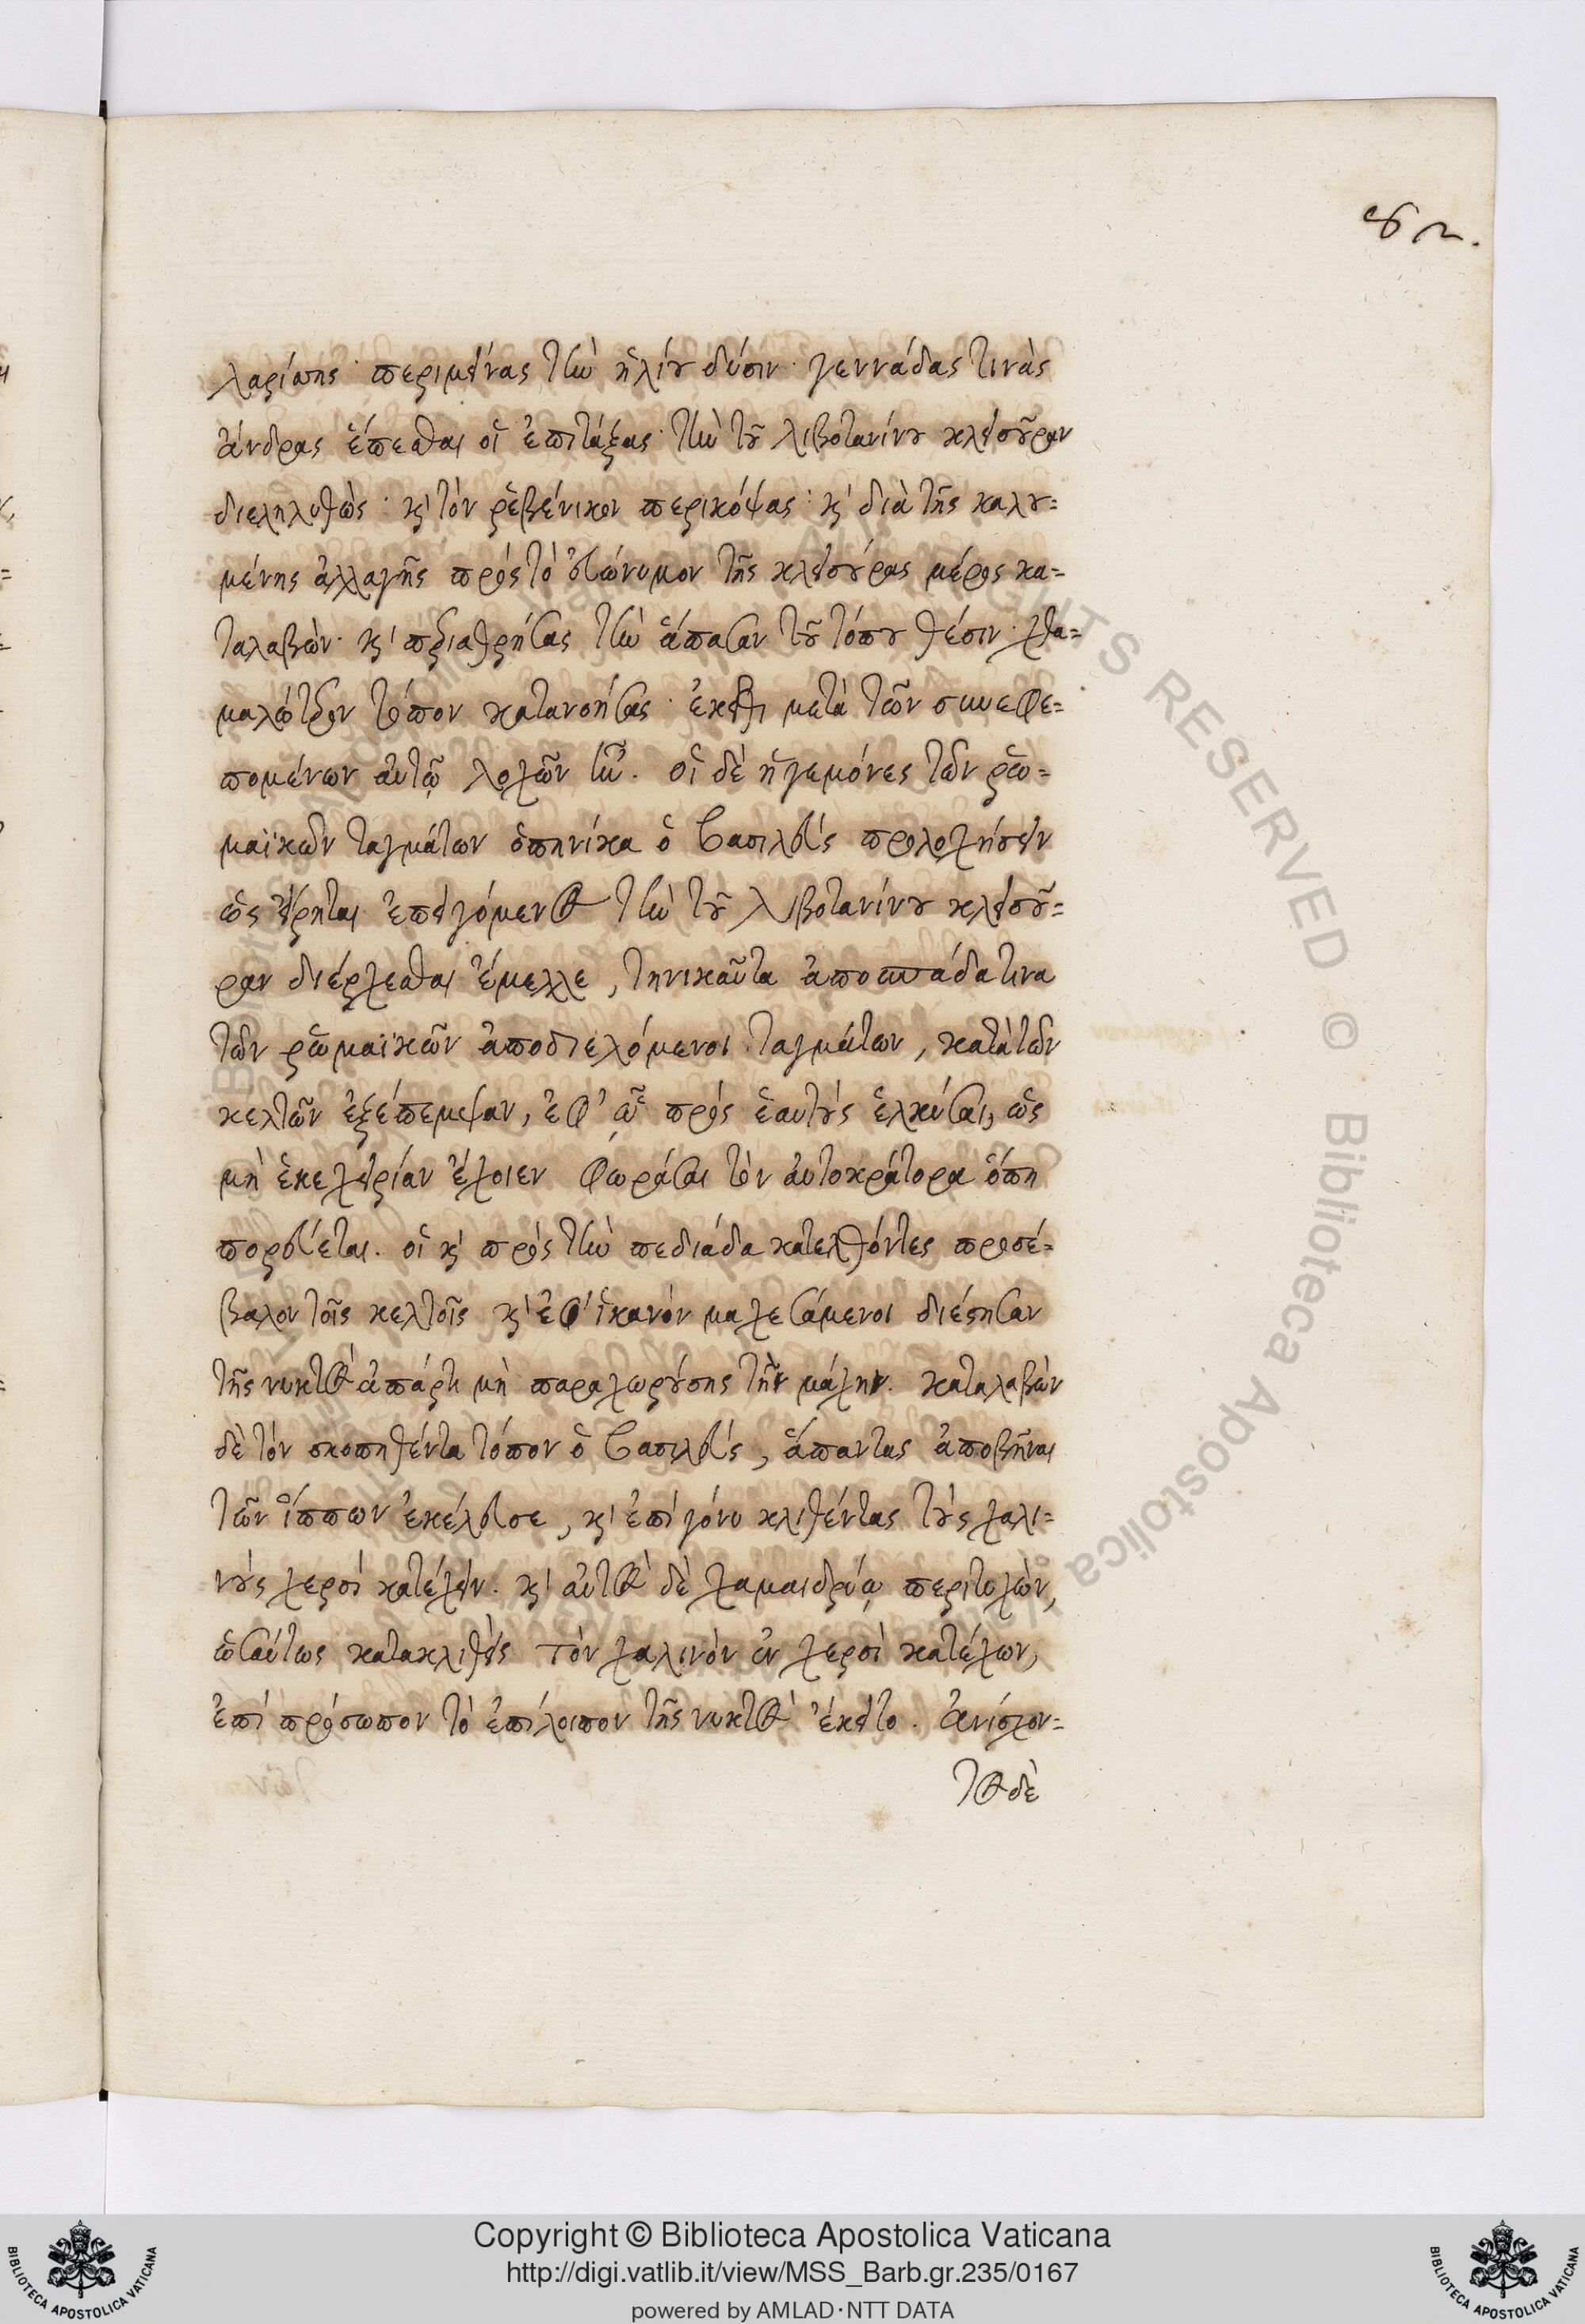 82.
λαρίσης· περιμείνας τὴν ἡλίου δύσιν· γεννάδας τινὰς
ἄνδρας ἕπεσθαι οἱ ἐπιτάξας· τὴν τοῦ λιβοτανίου κλεισοῦραν
διεληλυθὼς· καὶ τὸν ῥεβένικον περικόψας· καὶ διὰ τῆς καλου=
μένης ἀλλαγῆς πρὸς τὸ εὐώνυμον τῆς κλεισούρας μέρος κα=
ταλαβὼν· καὶ περιαθρήσας τὴν ἅπασαν τοῦ τόπου θέσιν· χθα=
μαλώτερον τόπον κατανοήσας· ἐκεῖθι μετὰ τῶν συνεφε=
πομένων αὐτῷ λοχῶν ἦν. οἱ δὲ ἡγεμόνες τῶν ῥω=
μαϊκῶν ταγμάτων ὁπηνίκα ὁ βασιλεὺς προλοχήσειν
ὡς εἴρηται ἐπειγόμενος τὴν τοῦ λιβοτανίνου κλεισοῦ=
ραν διέρχεσθαι ἔμελλε, τηνικαῦτα ἀποσπάδα τινα
τῶν ῥωμαϊκῶν ἀποδιελόμενοι ταγμάτων, κατὰ τῶν
κελτῶν ἐξέπεμψαν, ἐφ' ᾧ πρὸς ἑαυτοὺς ἑλκύσαι, ὡς
μὴ ἐκεχειρίαν ἔχοιεν φωρᾶσαι τὸν αὐτοκράτορα ὅπη
πορεύεται. οἱ καὶ πρὸς τὴν πεδιάδα κατελθόντες προσέ=
βαλον τοῖς κελτοῖς καὶ ἐφ' ἱκανὸν μαχεσάμενοι διέστησαν
τῆς νυκτὸς ἀπάρτι μὴ παραχωρούσης τὴν μάχην. καταλαβὼν
δὲ τὸν σκοπηθέντα τόπον ὁ βασιλεὺς, ἅπαντας ἀποβῆναι
τῶν ἵππων ἐκέλευσε, καὶ ἐπὶ γόνυ κλιθέντας τοὺς χαλι=
νοὺς χερσὶ κατέχειν. καὶ αὐτὸς δὲ χαμαιδρύῳ περιτυχὼν,
ὡσαύτως κατακλιθεὶς τὸν χαλινὸν ἐν χερσὶ κατέχων,
ἐπὶ πρόσωπον τὸ ἐπίλοιπον τῆς νυκτὸς ἔκειτο. ἀνίσχον=
τος δὲ
Copyright © Biblioteca Apostolica Vaticana
http://digi.vatlib.it/view/MSS_Barb.gr.235/0167
powered by AMLAD·NTT DATA